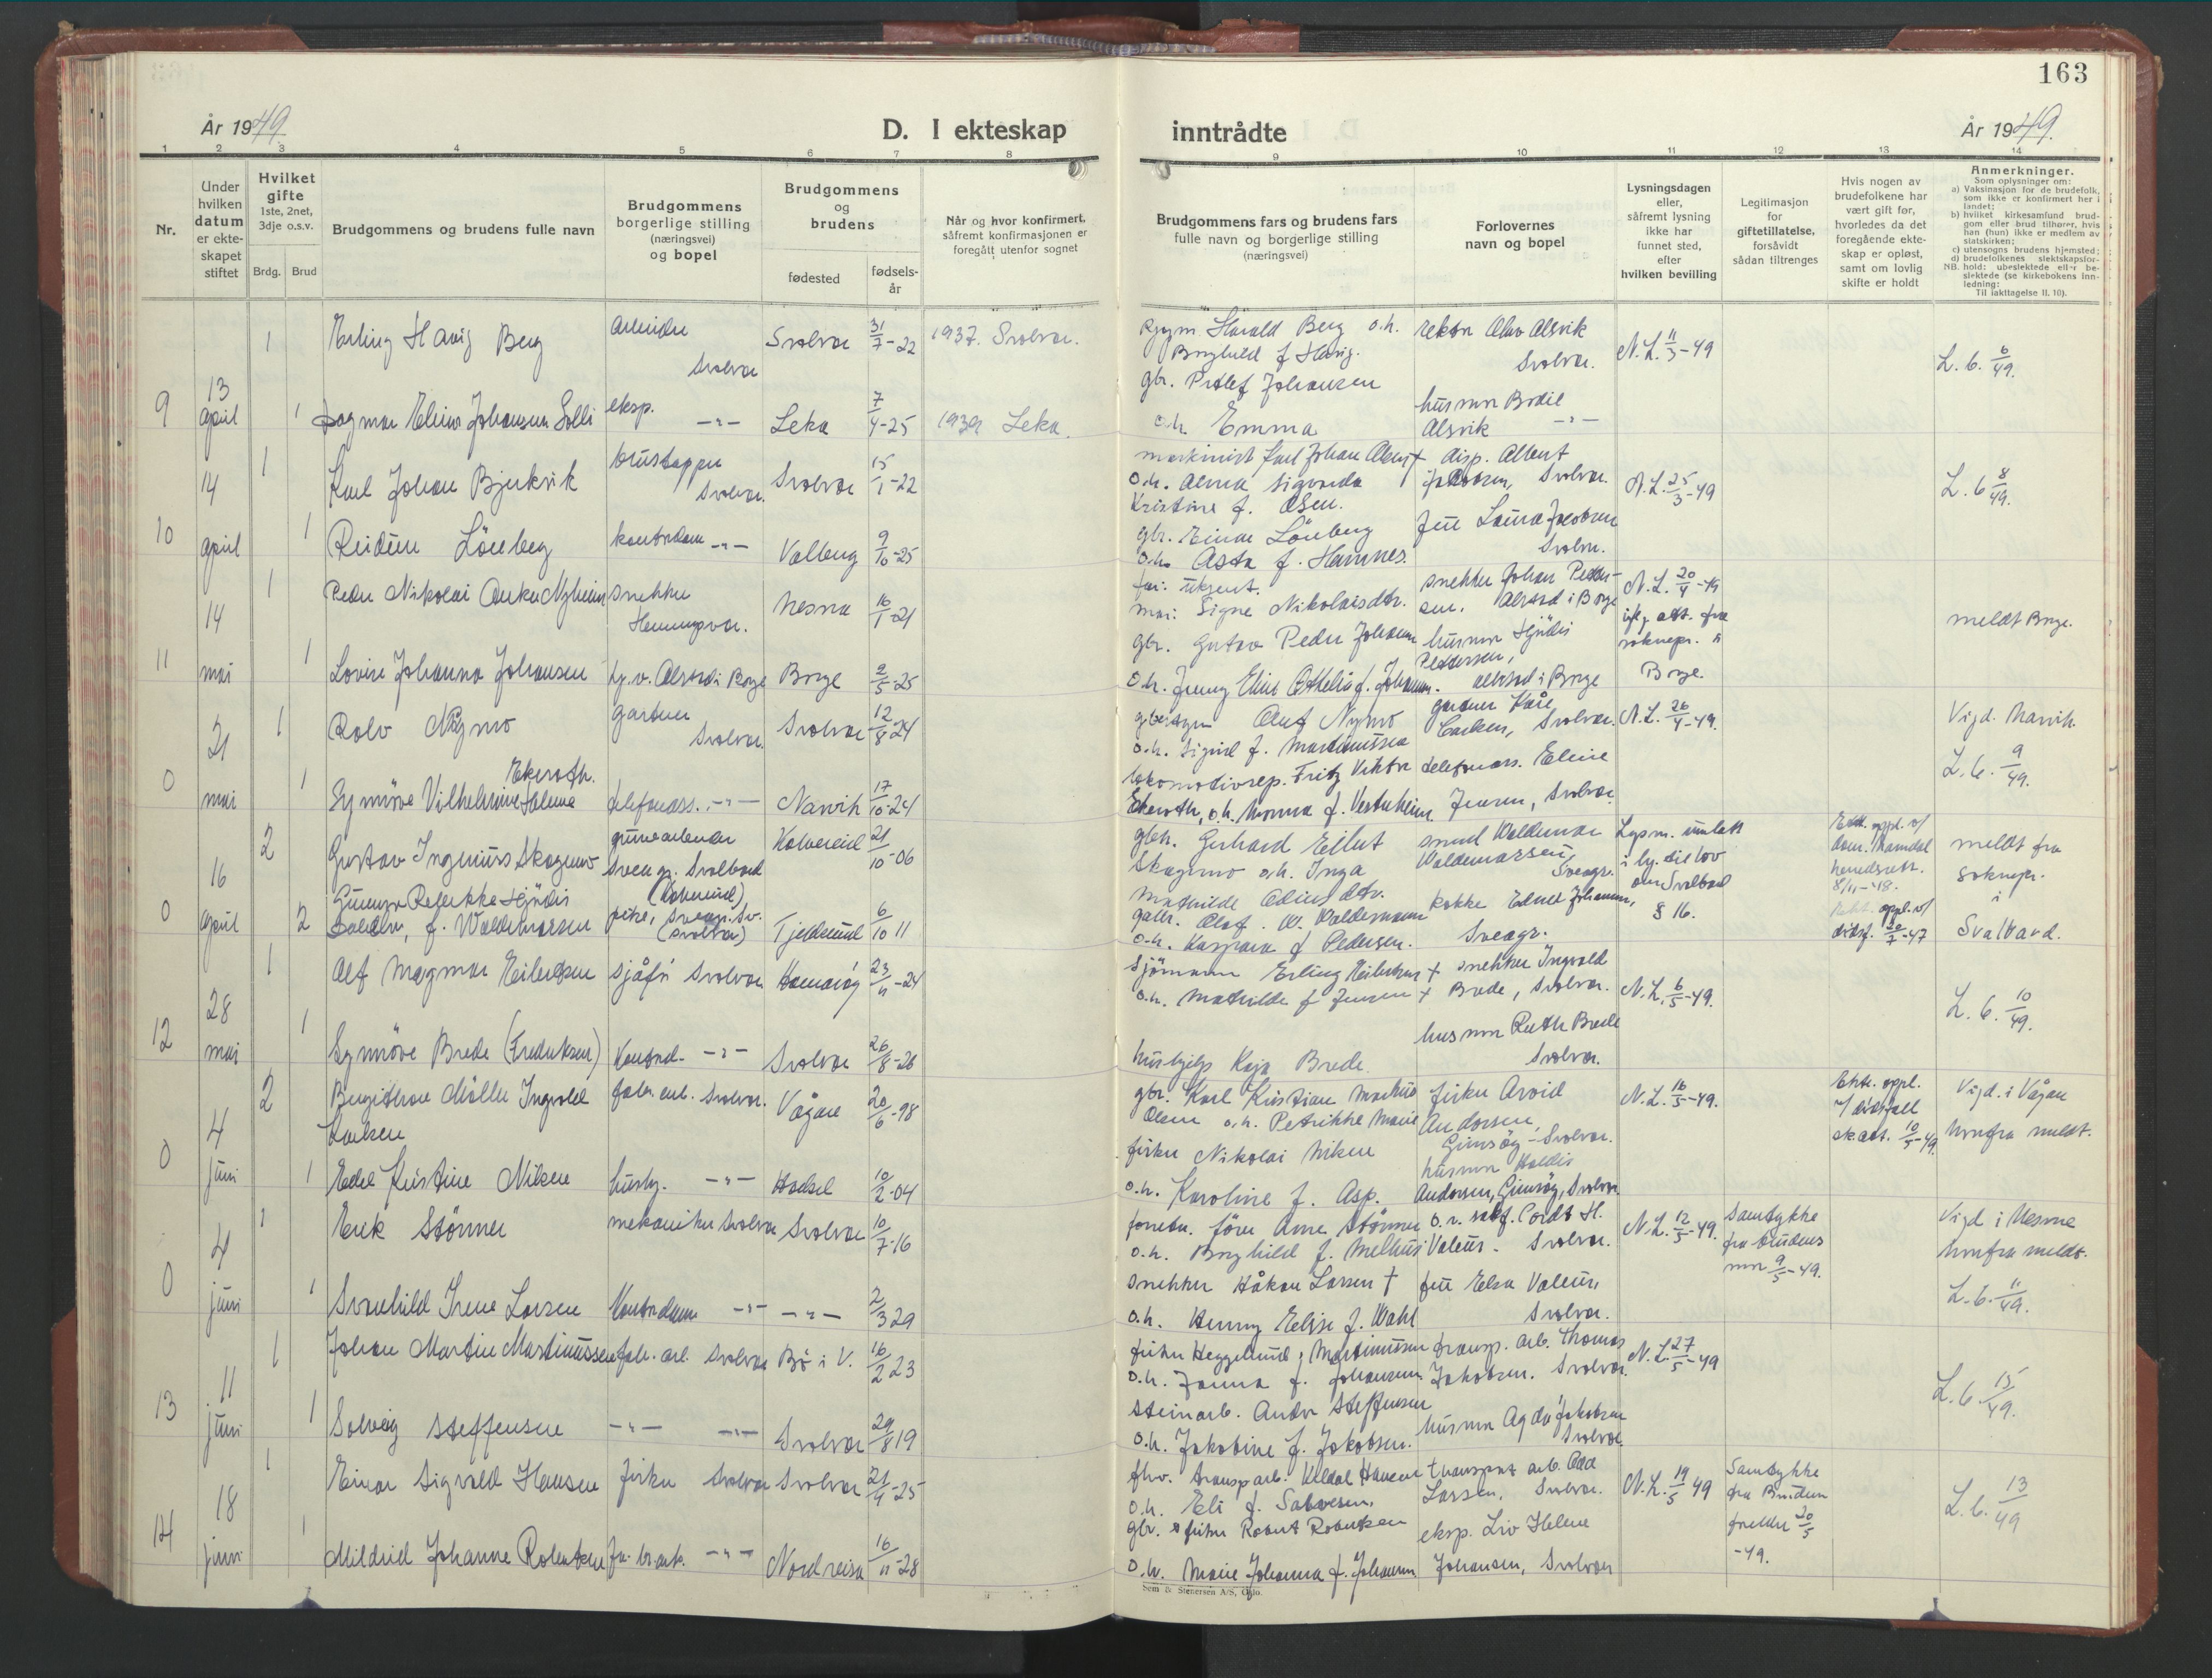 163
År 1949.
D. I ekteskap
inntrådte
År 1949.
1 2 3 4 5 6 7 8 9 10 11 12 13 14
Nr.
Under
hvilken
datum
er ekte-
skapet
stiftet
Hvilket
gifte
1ste, 2net,
3dje o.s.v.
Brdg. Brud
Brudgommens og brudens fulle navn
Brudgommens
borgerlige stilling
(næringsvei)
og bopel
Brudgommens
og
brudens
fødested
fødsels-
år
Når og hvor konfirmert,
såfremt konfirmasjonen er
foregått utenfor sognet
Brudgommens fars og brudens fars
fulle navn og borgerlige stilling
(næringsvei)
Forlovernes
navn og bopel
Lysningsdagen
eller,
såfremt lysning
ikke har
funnet sted,
efter
hvilken bevilling
Legitimasjon
for
giftetillatelse,
forsåvidt
sådan tiltrenges
Hvis nogen av
brudefolkene har
vært gift før,
hvorledes da det
foregående ekte-
skap er opløst,
samt om lovlig
skifte er holdt
Anmerkninger.
Som oplysninger om:
a) Vaksinasjon for de brudefolk,
som ikke er konfirmert her i
landet;
b) hvilket kirkesamfund brud-
gom eller brud tilhører, hvis
han (hun) ikke er medlem av
statskirken;
c) utensogns brudens hjemsted;
d) brudefolkenes slektskapsfor-
NB. hold: ubeslektede eller be-
slektede (se kirkebokens inn-
ledning:
Til iakttagelse II. 10).
1 Erling Havig Berg arbeider Svolvær Svolvær 31/7-22 1937. Svolvær.
Harald Berg o.h. Borghild f. Havig. rektor Olav Alsvik Svolvær. N.L. 11/3-49 L.6. 6/49.
9 13 april 1 Dagmar Elina Johansen Solli eksp. -"- Leka 7/4-25 1939 Leka.
gbr. Petlef Johansen o.h. Emma husmor Bodil Alsvik -"-
14 1 Karl Johan Bjerkvik Svolvær. Svolvær 15/1-22
maskinist Karl Johan o.h. Alma Sigvarda Kristine f. Olsen. disp. Albert Jakobsen, Svolvær. N.L. 25/3-49 L.6 8/49.
10 april 1 Reidun Löneberg kontordame -"- Valberg 9/10-25
gbr. Einar Löneberg o.h. Asta f. Hamnes. fru Laura Jacobsen Svolvær.
14 1 Peder Nikolai Anker Nyheim snekker Henningsvær. Nesna 16/1-21
far: ukjent. mor: Signe Nikolaisdtr. snekker Johan Pedersen. Alstad i Borge N.L. 20/4-49 soknepr. i Borge. meldt Borge.
11 mai 1 Lovise Johanna Johansen hj.v. Alstad i Borge Borge 2/5-25
gbr. Gustav Peder Johansen o.h. Jenny Eline Othelia f. Johansen. husmor Hjördis Pedersen, Alstad i Borge
21 1 Rolv Nymo gartner Svolvær. Svolvær 12/8 24
Olaf Nymo o.h. Sigrid f. Martinussen gartner Kåre Carlsen, Svolvær. N.L. 26/4-49. Vigd. Narvik.
0 mai 1 Synnöve Vilhelmine Helene Ekeroth. telefonass. -"- Narvik 17/10-24
lokomotivrep. Fritz Viktor Ekeroth, o.h. Monna f. Vesterheim telefonass. Eline Jensen, Svolvær. L.6. 9/49.
16 2 Gustav Ingenius Skogmo gruvearbeider Sveagr. Svalbard Kolvereid 21/10-06
gbr. Gerhard Eilert Skogmo o.h. Inga Mathilde smed Waldemar Waldemarsen, Sveagr. i h. til lov om Svalbard § 16. Ekt. oppl. v/ dom. Namdal herredsrett. 8/11-'48. meldt fra soknepr. i Svalbard.
0 april 2 f. Waldemarsen Sveagr. Sv. (Svolvær) Tjeldsund 6/10 11
Olaf. W. Waldemarsen o.h. Kaspara f. Pedersen. kokke Edna Johansen, Sveagr. Ekt. oppl. v/ dödsf. 20/7-47
28 1 Alf Magmar Eilertsen sjåför Svolvær Hamaröy 23/11-24
sjömann Erling Eilertsen + o.h. Mathilde f Jensen + snekker Ingvald Brede, Svolvær. N.L. 6/5-49. L.6. 10/49.
12 mai 1 Synnöve Brede (Fredriksen) kontord. -"- Svolvær 26/8-26
hushjelp Kaja Brede. husmor Ruth Brede Svolvær.
4 2 Bergithon Möller Ingvald Karlsen fabr. arb. Svolvær. Vågan 20/6-98
gbr. Karl Kristian Markus Olsen o.h. Petrikke Marie fisker Arvid Andorsen, Gimsöy-Svolvær. N.L. 16/5-49. Ekt. oppl. v/ dödsfall sk.att. 10/5-49. Vigd. i Vågan herfra meldt.
0 juni 1 Edel Kristine Nilsen hushj. -"- Hadsel 10/2-04
fisker Nikolai Nilsen o.h. Karoline f. Asp. husmor Haldis Andorsen, Gimsöy, Svolvær
4 1 Erik Störmer mekaniker Svolvær Svolvær 10/7-16
Arne Störmer o.h. Borghild f. Melhus o.r. sakf. Cordt H. Valeur - Svolvær. N.L. 12/5-49. Samtykke fra brudens mor 9/5-49. Vigd i herfra meldt.
0 juni 1 Svanhild Irene Larsen kontordame -"- -"- 2/3 29
snekker Håkon Larsen + o.h. Henny Elise f. Wahl fru Elsa Valeur, Svolvær. L.6. 11/49.
11 1 Johan Martin Martinussen fabr. arb. Svolvær Bö i V. 16/2 23
fisker Heggelund Martinussen o.h. Janna f. Johansen transp. arb. Thomas Jakobsen. Svolvær. N.L. 27/5-49 L.6. 15/49.
13 juni 1 Solveig Steffensen -"- -"- Svolvær 29/8 19
steinarb. Andor Steffensen o.h. Jakobine f. Jakobsen. husmor Agda Jakobsen Svolvær.
18 1 Einar Sigvald Hansen fisker Svolvær Svolvær 21/4-25
transp.arb. Hansen o.h. Eli f. Salvesen. transport arb. Larsen, Svolvær. N.L. 19/5 49 Samtykke fra Brudens foreldre 20/5-49. L.6. 13/49
14 juni 1 Mildrid Johanne Robertsen -"- Nordreisa 16/11-28
gbr. fisker Robert Robertsen o.h. Marie Johanna f. Johansen eksp. Liv Helene Johansen, Svolvær
Sem & Stenersen A/S, Oslo.